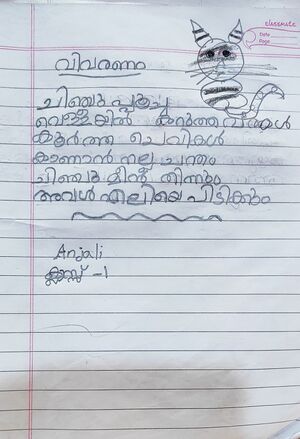 classmate
Date
Page
വിവരണം
ചിഞ്ചു പൂച്ച
വെള്ളയിൽ കറുത്ത വരകൾ
കൂർത്ത ചെവികൾ
കാണാൻ നല്ല ചന്തം
ചിഞ്ചു മീൻ തിന്നും
അവൾ എലിയെ പിടിക്കും
Anjali
ക്ലാസ്സ് -1